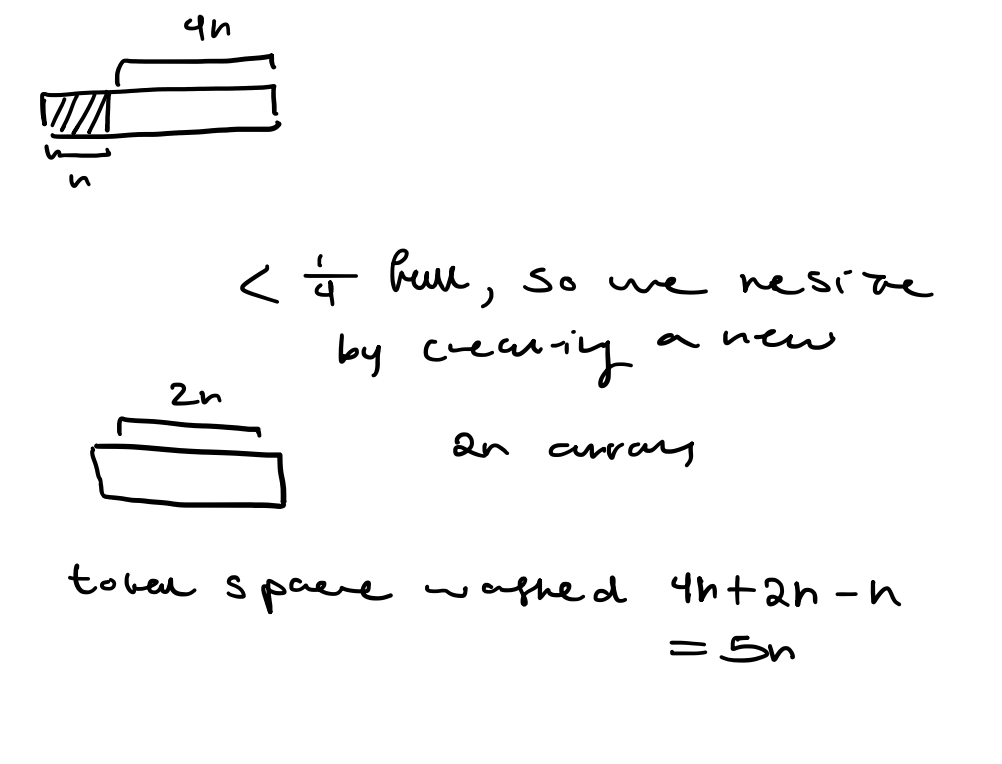 4n
n
< 1/4 full, so we resize
by creating a new
2n
2n array
total space wasted 4n+2n-n
= 5n